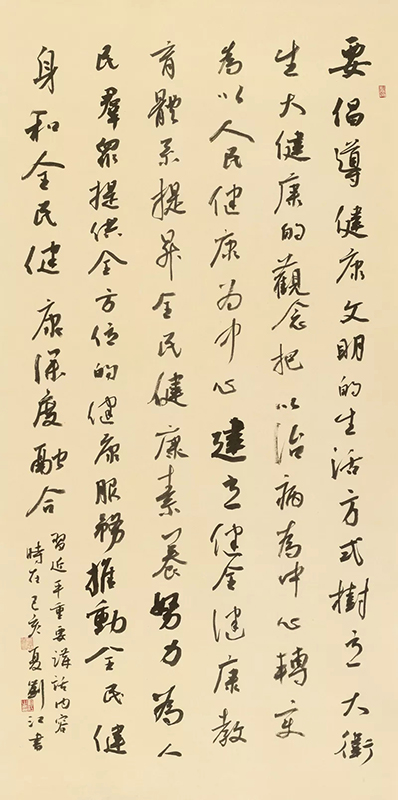 要倡導健康文明的生活方式樹立大衛
生大健康的觀念把以治病為中心轉变
為以人民健康为中心建立健全健康教
育體系提昇全民健康素養努力為人
民羣眾提供全方位的健康服務推動全民健
身和全民健康深度融合
習近平重要講話內容
時在己亥夏劉江書